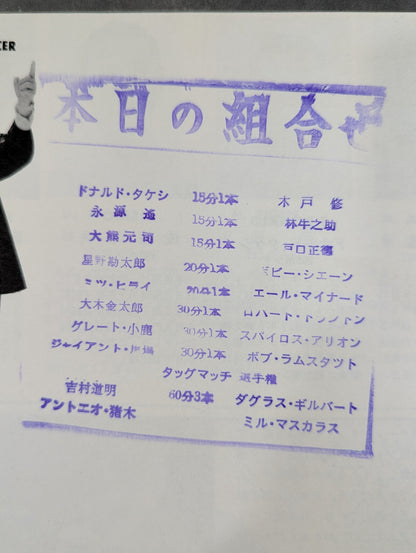 CER
本日の組合せ
ドナルド・タケシ 15分1本 木戸修
永源遙 15分1本 林牛之助
大熊元司 15分1本 戸口正徳
星野勘太郎 20分1本 ボビー・シエーン
ミツ・ヒライ 20分1本 エール・マイナード
大木金太郎 30分1本
グレート・小鹿 30分1本 スパイロス・アリオン
ジャイアント・馬場 30分1本 ボブ・ラムスタツト
タッグマッチ 選手権
吉村道明 60分3本 ダグラス・ギルバート
アントニオ・猪木 ミル・マスカラス